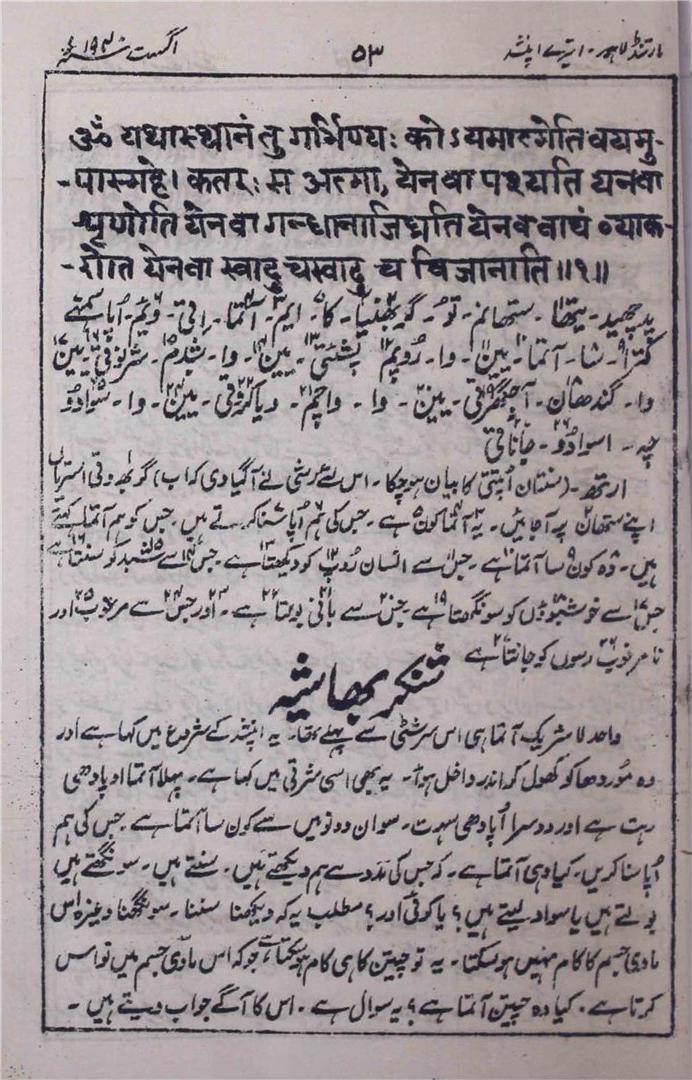 مارتنڈ لاہور۔ ایترے اپنشد
۵۳
اگست
ॐ यथास्थानंतु गर्भिण्यः कोऽयमात्मेति वयमु-
-पास्महे। कतरः स अत्मा, येनवा पश्यति येनवा
शृणोति येनवा गन्धानाजिघ्रति येनववाचं व्याक-
-रोति येनवा स्वादुचास्वादु च विजानाति॥१॥
پدچھید۔ یتھا۔ ستھانم۔ تو۔ گربھنیا۔ کا۔ ایم۔ آتما۔ اِتی۔ ویَم۔ اُپاسمہے
کترا۔ سا۔ آتما۔ یین۔ وا۔ رُوپم۔ پشئتی۔ یین۔ وا۔ شبدم۔ شرنوتی۔ یین
وا۔ گندھان۔ آجگھرتی۔ یین۔ وا۔ واچم۔ ویاکروتی۔ یین۔ وا۔ سوادُو
چہ۔ اسوادُو۔ جاناتی
ارتھ۔ (سنتان اُپتتی کا بیان ہو چکا۔ اس لئے رشی نے آگیا دی کہ اب) گربھ وتی استریاں
اپنے ستھان پر آجائیں۔ یہ آتما کون ہے۔ جس کی ہم اُپاسنا کرتے ہیں۔ جس کو ہم آتما کہتے
ہیں۔ وہ کون سا آتما ہے۔ جس سے انسان رُوپ کو دیکھتا ہے۔ جس سے شبد کو سنتا ہے
جس سے خوشبوؤں کو سونگھتا ہے۔ جس سے بانی بولتا ہے۔ اور جس سے مرغوب اور
نامرغوب رسوں کو جانتا ہے
شنکر بھاشیہ
واحد لاشریک آتما ہی اس سرشٹی سے پہلے تھا۔ یہ اپنشد کے شروع میں کہا ہے اور
وہ مُوردھا کو کھول کر اندر داخل ہوا۔ یہ بھی اسی شرتی میں کہا ہے۔ پہلا آتما اوپادھی
رہت ہے اور دوسرا اُپادھی سہت۔ سو ان دونوں میں سے کون سا آتما ہے۔ جس کی ہم
اُپاسنا کریں۔ کیا وہی آتما ہے۔ کہ جس کی مدد سے ہم دیکھتے ہیں۔ سنتے ہیں۔ سونگھتے ہیں
بولتے ہیں یا سواد لیتے ہیں؟ یا کوئی اور؟ مطلب یہ کہ دیکھنا سننا۔ سونگھنا وغیرہ اس
مادی جسم کا کام نہیں ہو سکتا۔ یہ تو چیتن کا ہی کام ہو سکتا ہے جو کہ اس مادی جسم میں نواس
کرتا ہے۔ کیا وہ چیتن آتما ہے؟ یہ سوال ہے۔ اس کا آگے جواب دیتے ہیں۔